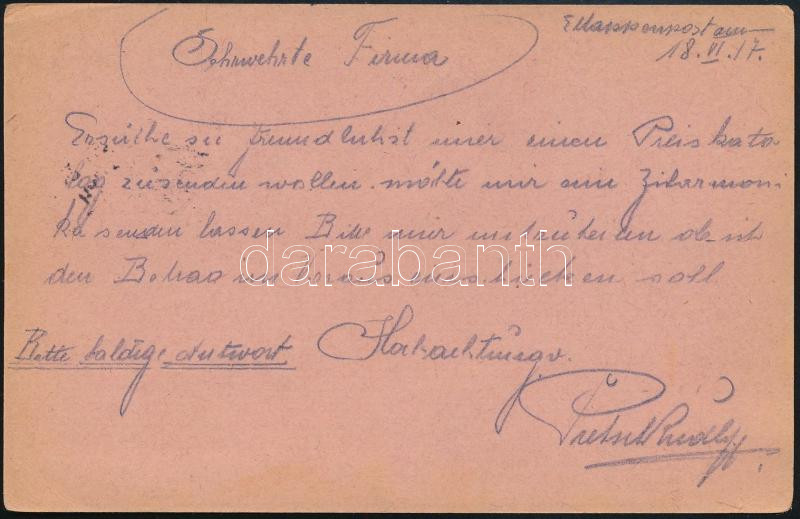 Ettappenpostam
18.VI.17.
Sehrwehrte Firma
Ersuche sie freundlichst mir einen Preiskata
log zusenden wollen. möchte mir ein Ziharmoni
ka senden lassen Bitte mir mitzuteilen ob ich
den Betrag im voraus einschicken soll
Bitte baldige Antwort Hochachtungsv.
Rudolf
darabanth